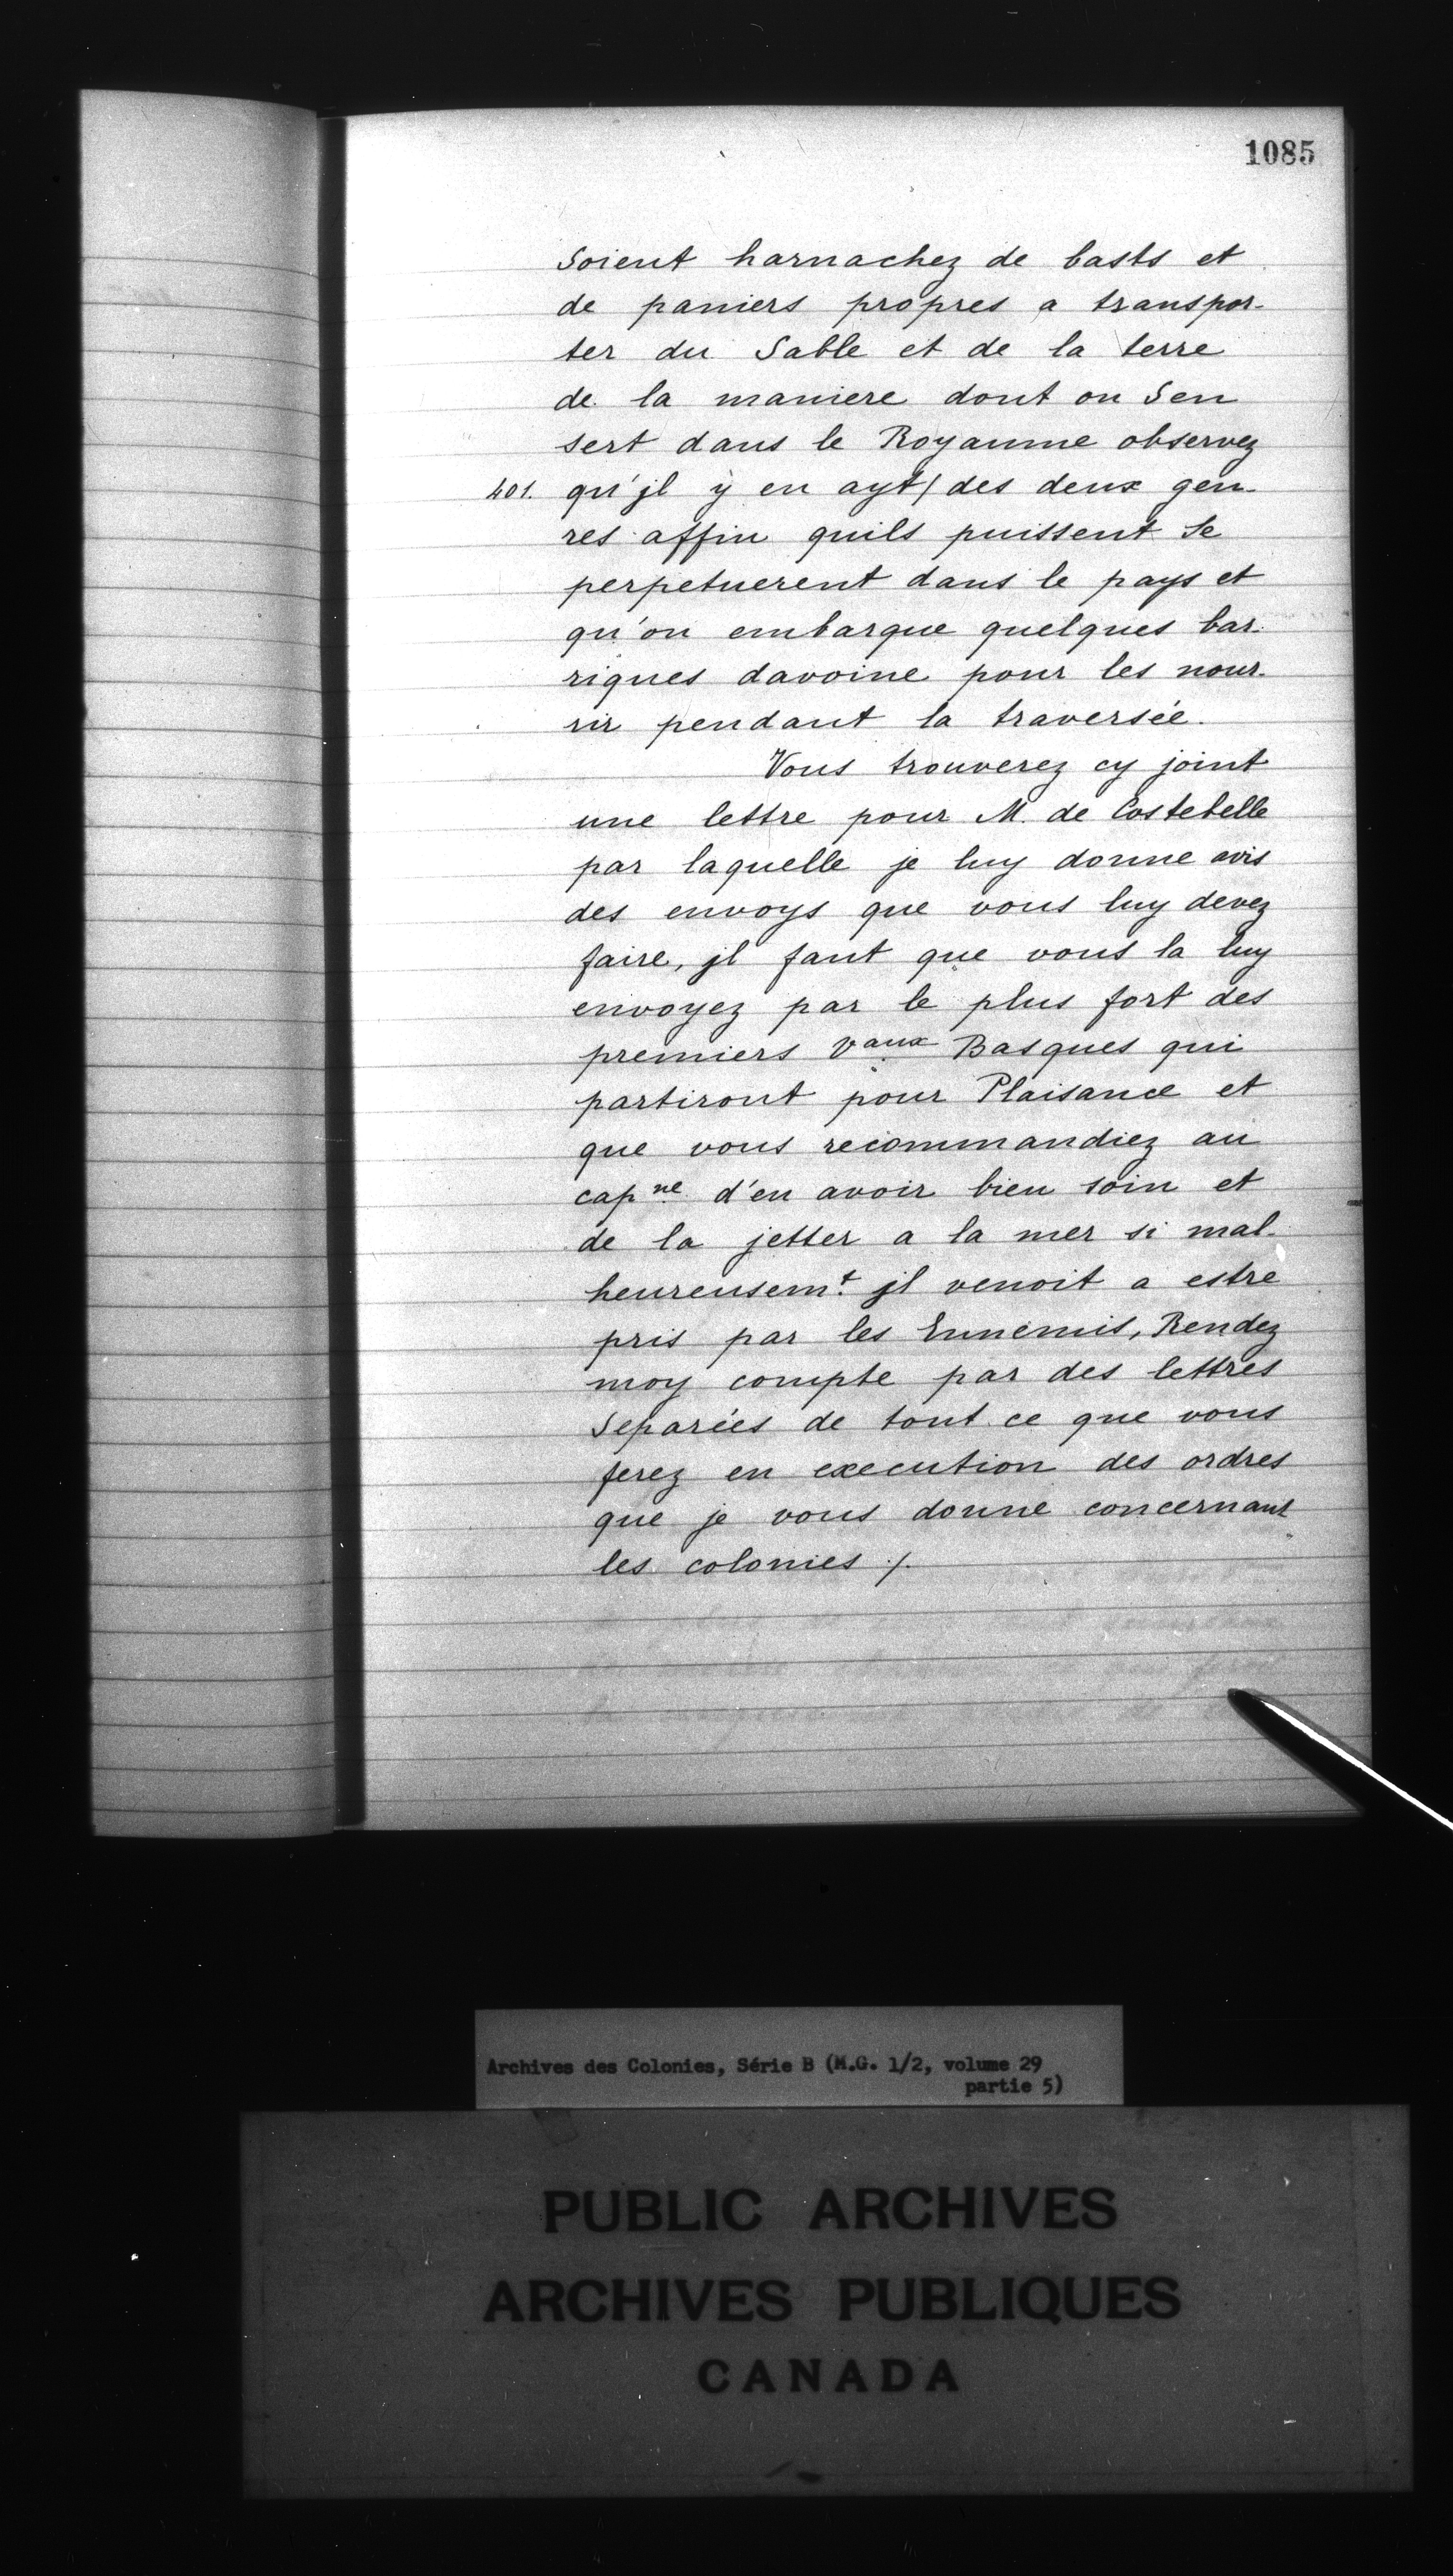 1085
Soient harnachez de basts et
de paniers propres a transpor-
ter du Sable et de la terre
de la maniere dont on Sen
sert dans le Royaume observez
401. qu'jl ÿ en ayt/ des deux gen-
res affin quils puissent Se
perpetuerent dans le pays et
qu'on embarque quelques bar-
riques davoine pour les nour-
rir pendant la traversée.
Vous trouverez cy joint
une lettre pour M. de Costebelle
par laquelle je luy donne avis
des envoys que vous luy devez
faire, jl faut que vous la luy
envoyez par le plus fort des
premiers Vaux Basques qui
partiront pour Plaisance et
que vous recommandiez au
capne d'en avoir bien soin et
de la jetter a la mer si mal-
heureusemt jl venoit a estre
pris par les Ennemis, Rendez
moy compte par des lettres
Separées de tout ce que vous
ferez en execution des ordres
que je vous donne concernant
les colonies ./.
Archives des Colonies, Série B (M.G. 1/2, volume 29
partie 5)
PUBLIC ARCHIVES
ARCHIVES PUBLIQUES
CANADA